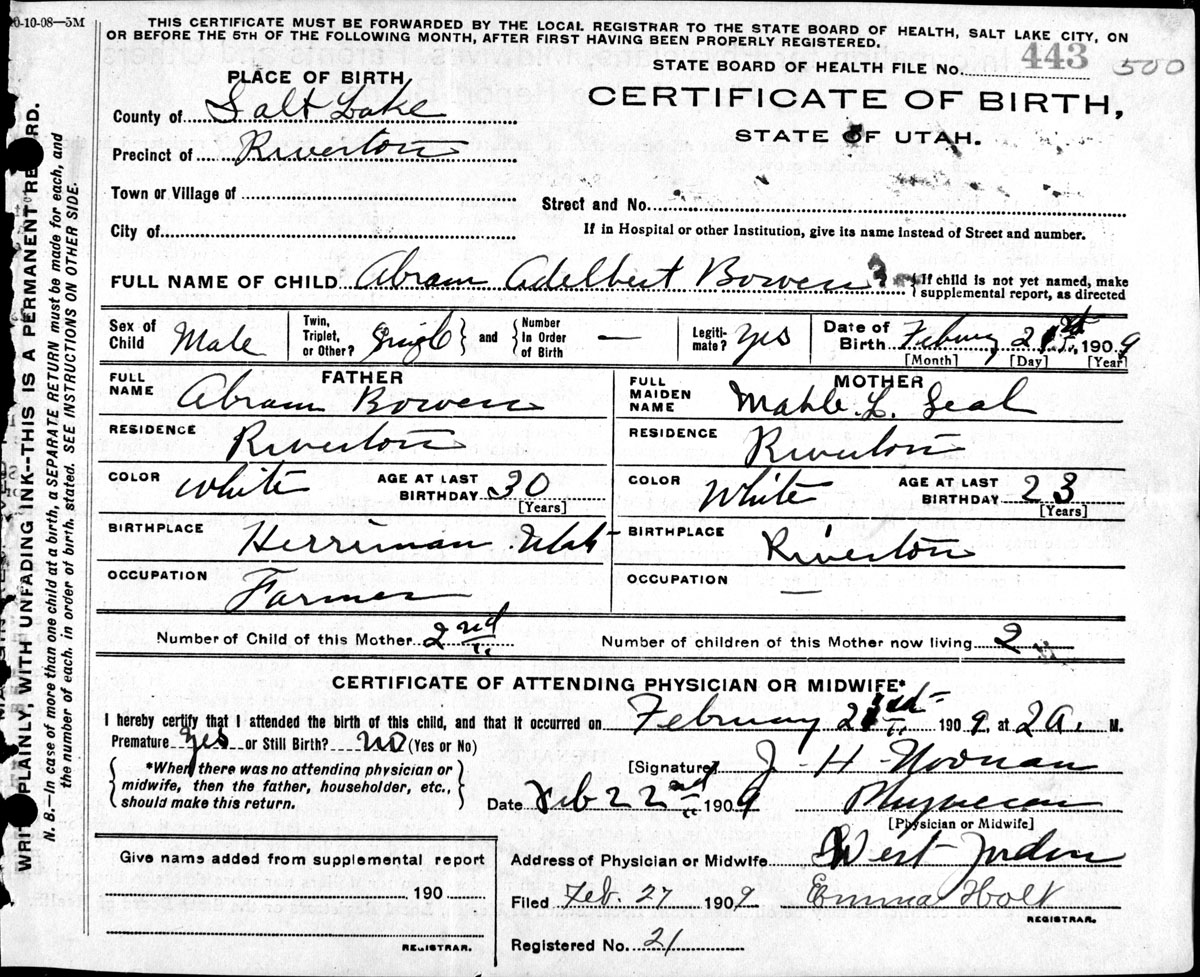 0-10-08—5M
THIS CERTIFICATE MUST BE FORWARDED BY THE LOCAL REGISTRAR TO THE STATE BOARD OF HEALTH, SALT LAKE CITY, ON
OR BEFORE THE 5TH OF THE FOLLOWING MONTH, AFTER FIRST HAVING BEEN PROPERLY REGISTERED.
STATE BOARD OF HEALTH FILE No. 443 500
PLACE OF BIRTH
CERTIFICATE OF BIRTH,
STATE OF UTAH.
County of Salt Lake
Precinct of Riverton
Town or Village of
Street and No.
City of
If in Hospital or other Institution, give its name instead of Street and number.
FULL NAME OF CHILD Abram Adelbert Bowen { If child is not yet named, make supplemental report, as directed
Sex of Child Male Twin, Triplet, or Other? Single } and { Number In Order of Birth — Legitimate? Yes Date of Birth Febury 21st 1909
[Month] [Day] [Year]
FATHER
FULL NAME Abram Bowen
RESIDENCE Riverton
COLOR White AGE AT LAST BIRTHDAY 30
[Years]
BIRTHPLACE Herriman Utah
OCCUPATION Farmer
MOTHER
FULL MAIDEN NAME Mable L. Seal
RESIDENCE Riverton
COLOR White AGE AT LAST BIRTHDAY 23
[Years]
BIRTHPLACE Riverton
OCCUPATION —
Number of Child of this Mother 2nd Number of children of this Mother now living 2
CERTIFICATE OF ATTENDING PHYSICIAN OR MIDWIFE*
I hereby certify that I attended the birth of this child, and that it occurred on February 1909, at 2 a. M.
Premature Yes or Still Birth? No (Yes or No)
{ *When there was no attending physician or
midwife, then the father, householder, etc.,
should make this return. }
[Signature] J H
Date Feb 22nd 1909 Physician
[Physician or Midwife]
Give name added from supplemental report
190
REGISTRAR.
Address of Physician or Midwife West Jordan
Filed Feb. 27 1909 Emma Holt
REGISTRAR.
Registered No. 21
WRITE PLAINLY, WITH UNFADING INK—THIS IS A PERMANENT RECORD.
N. B.—In case of more than one child at a birth, a SEPARATE RETURN must be made for each, and
the number of each, in order of birth, stated. SEE INSTRUCTIONS ON OTHER SIDE.